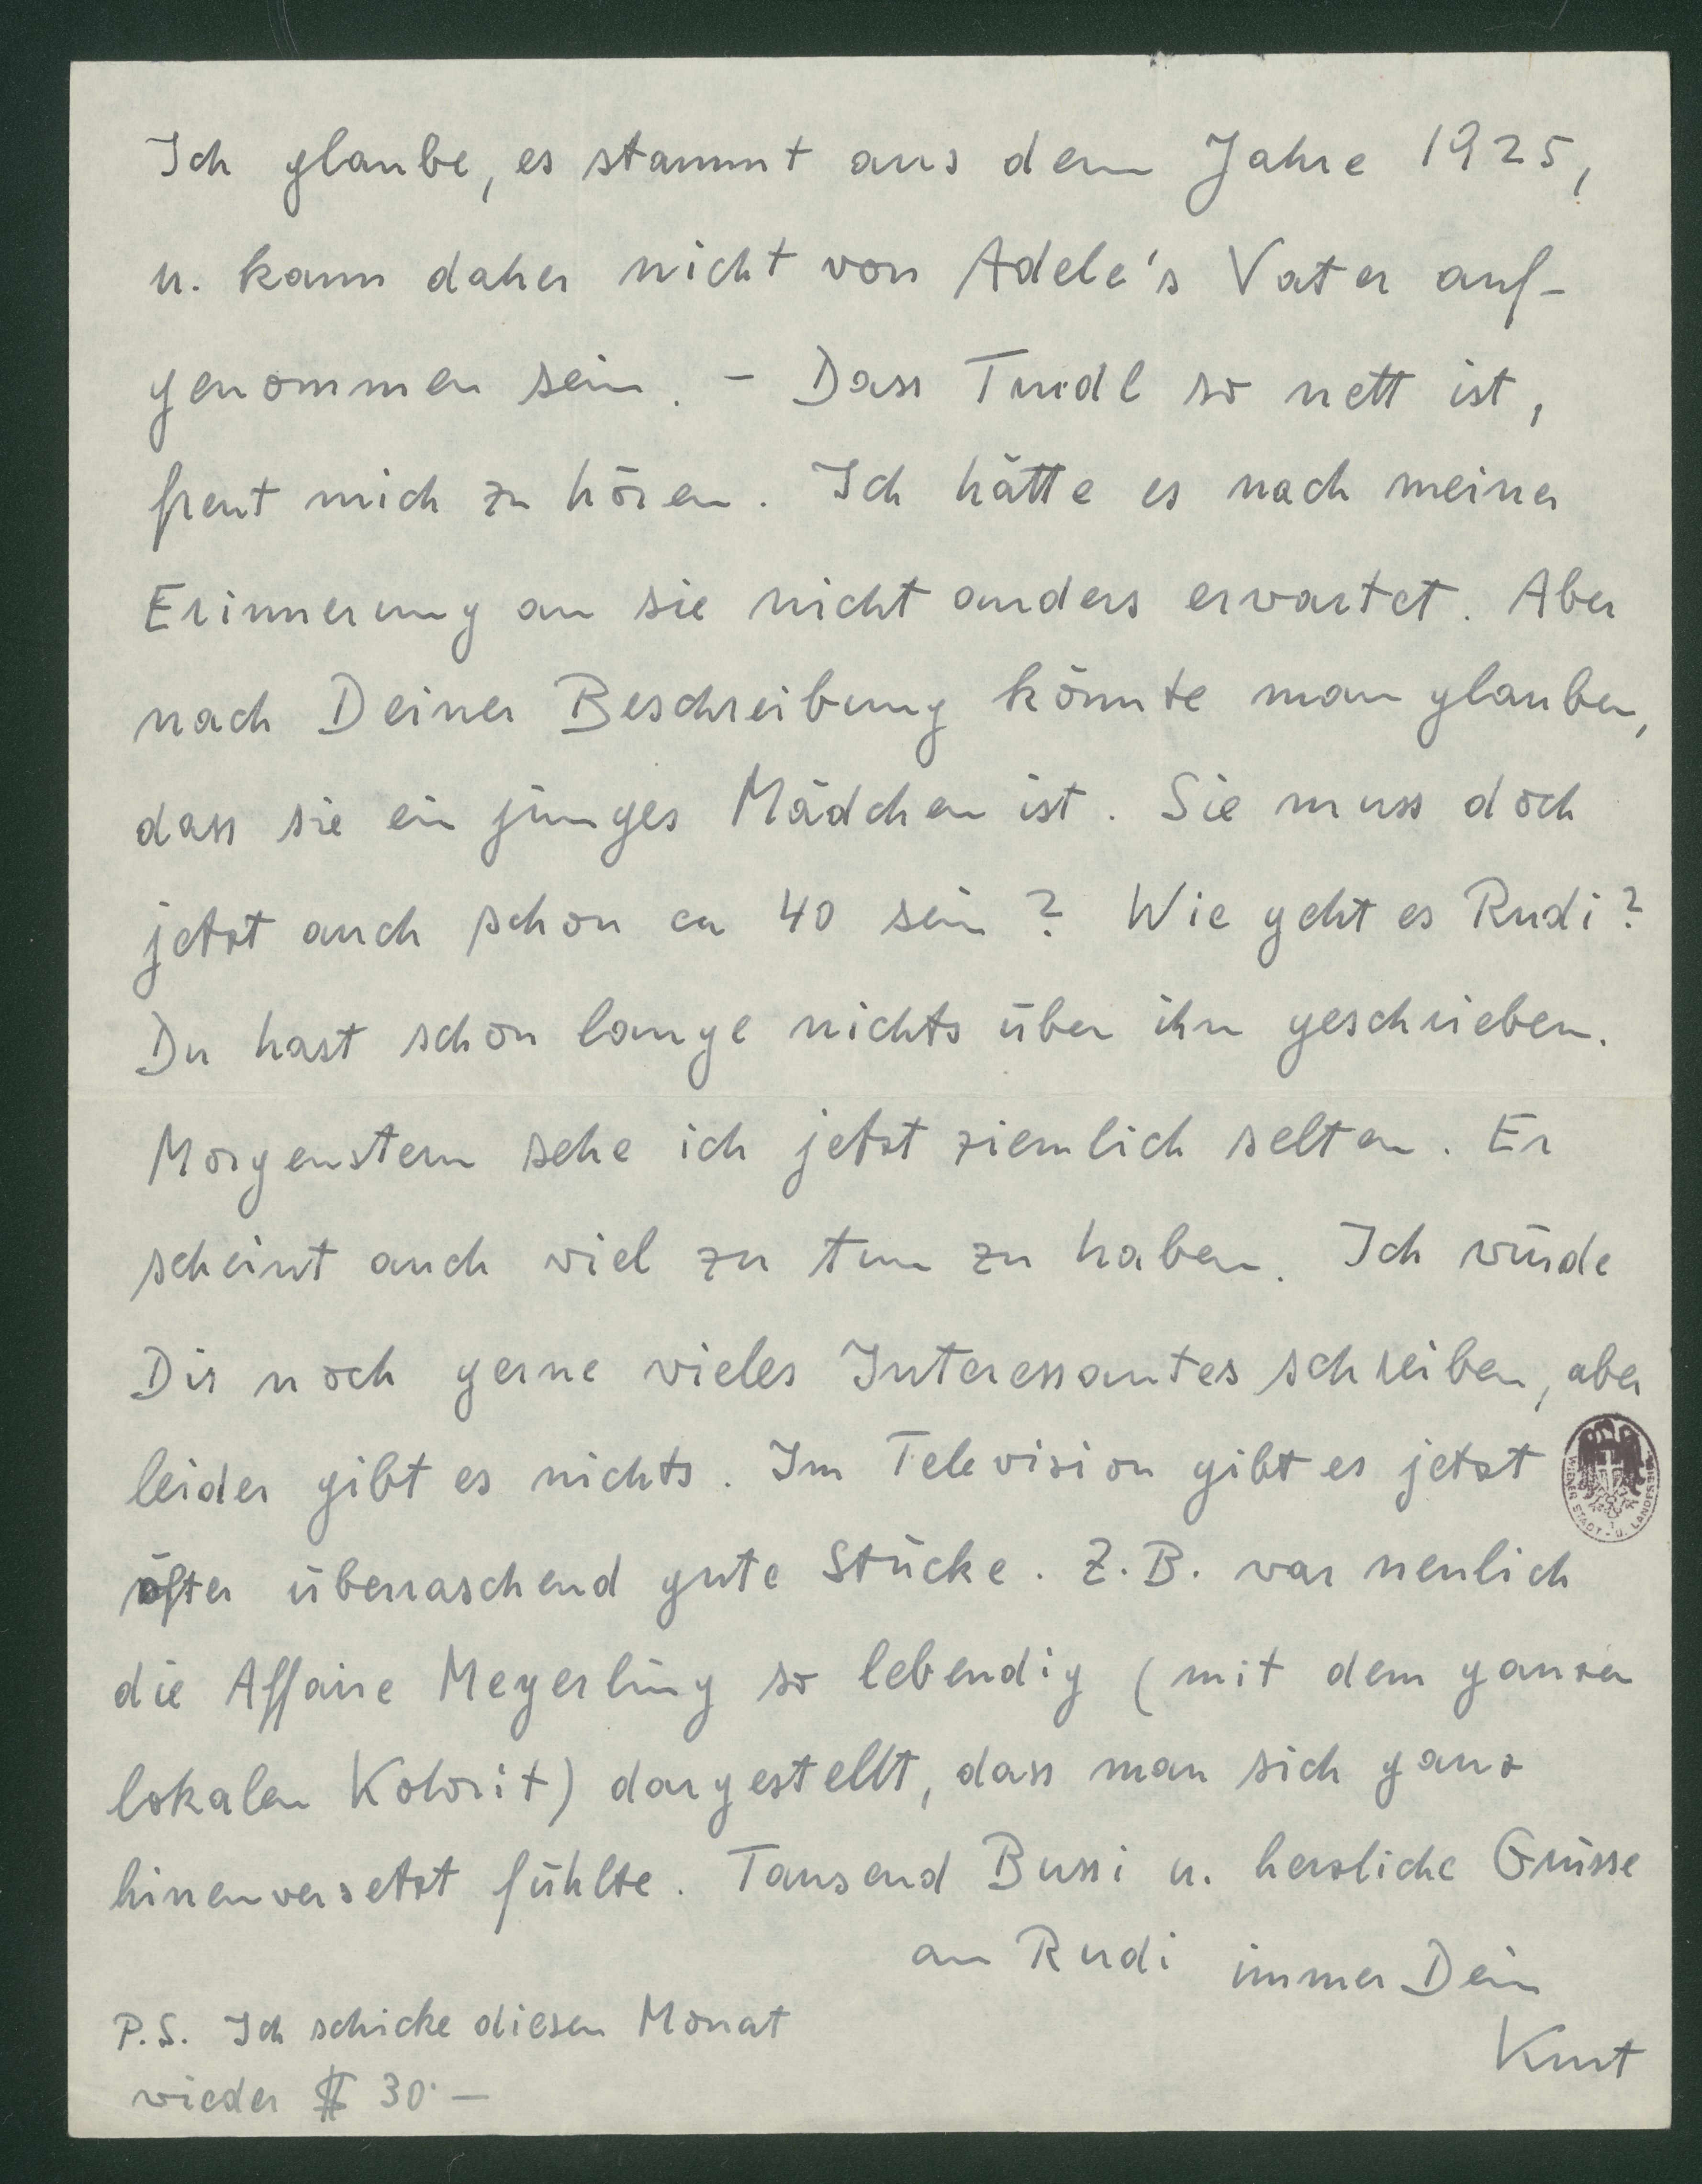 Ich glaube, es stammt aus dem Jahre 1925,
u. kann daher nicht von Adele's Vater auf-
genommen sein. – Dass Trudl so nett ist,
freut mich zu hören. Ich hätte es nach meiner
Erinnerung an sie nicht anders erwartet. Aber
nach Deiner Beschreibung könnte man glauben,
dass sie ein junges Mädchen ist. Sie muss doch
jetzt auch schon ca 40 sein? Wie geht es Rudi?
Du hast schon lange nichts über ihn geschrieben.
Morgenstern sehe ich jetzt ziemlich selten. Er
scheint auch viel zu tun zu haben. Ich würde
Dir noch gerne vieles Interessantes schreiben, aber
leider gibt es nichts. Im Television gibt es jetzt
öfter überraschend gute Stücke. Z.B. war neulich
die Affaire Meyerling so lebendig (mit dem ganzen
lokalen Kolorit) dargestellt, dass man sich ganz
hineinversetzt fühlte. Tausend Bussi u. herzliche Grüsse
an Rudi immer Dein
Kurt
P.S. Ich schicke diesen Monat
wieder $ 30·—
WIENER STADT- U. LANDESBIBL